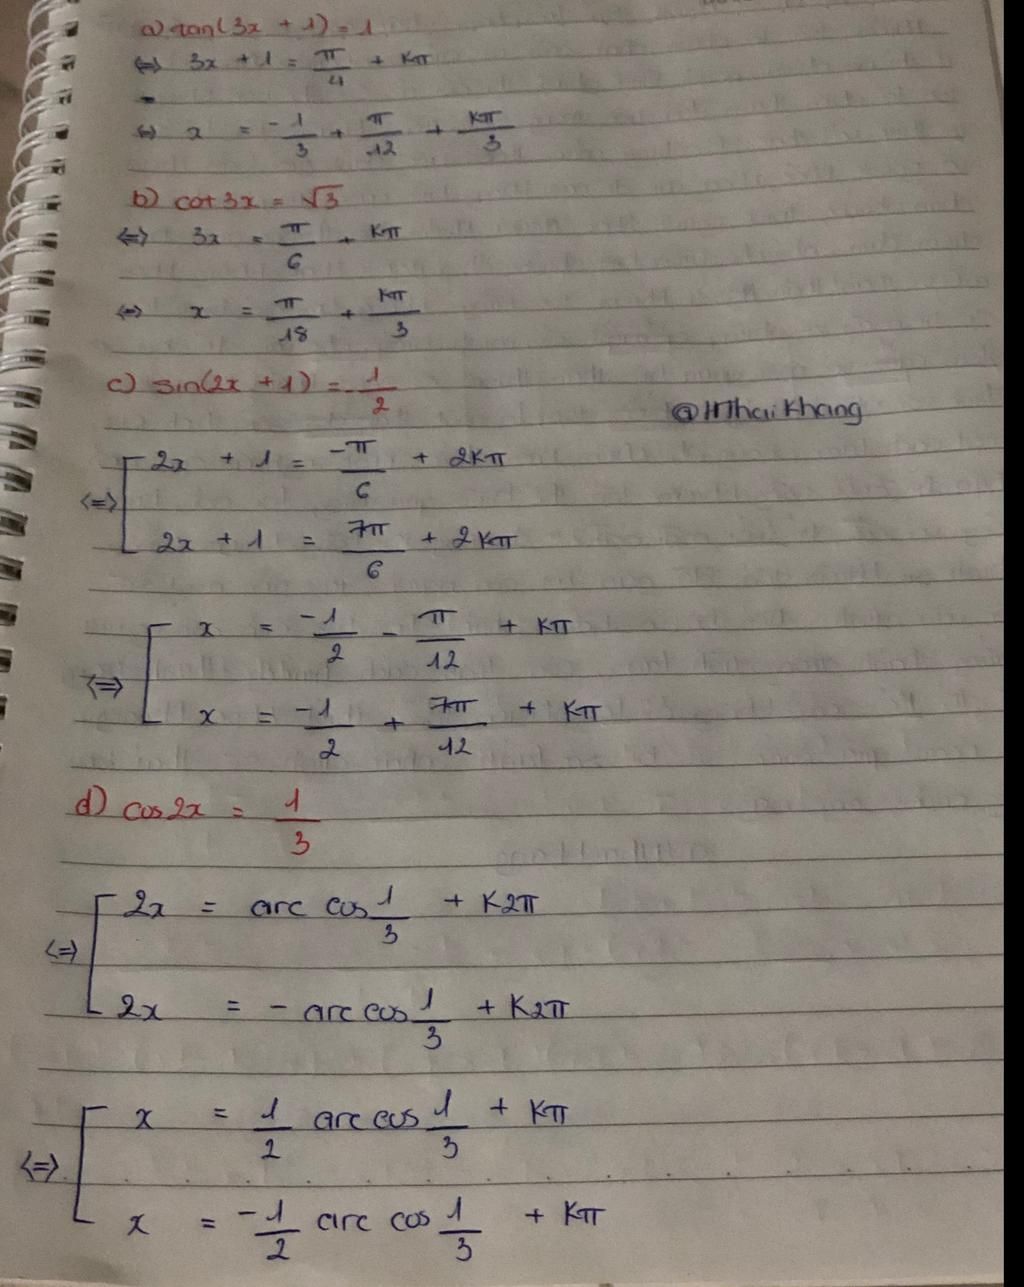 a) tan(3x + 1) = 1
⇔ 3x + 1 = π/4 + kπ
⇔ x = -1/3 + π/12 + kπ/3
b) cot 3x = √3
⇔ 3x = π/6 + kπ
⇔ x = π/18 + kπ/3
c) sin(2x + 1) = -1/2
@HThaiKhang
⇔ [ 2x + 1 = -π/6 + 2kπ
2x + 1 = 7π/6 + 2kπ
⇔ [ x = -1/2 - π/12 + kπ
x = -1/2 + 7π/12 + kπ
d) cos2x = 1/3
⇔ [ 2x = arc cos 1/3 + k2π
2x = - arc cos 1/3 + k2π
⇔ [ x = 1/2 arc cos 1/3 + kπ
x = -1/2 arc cos 1/3 + kπ